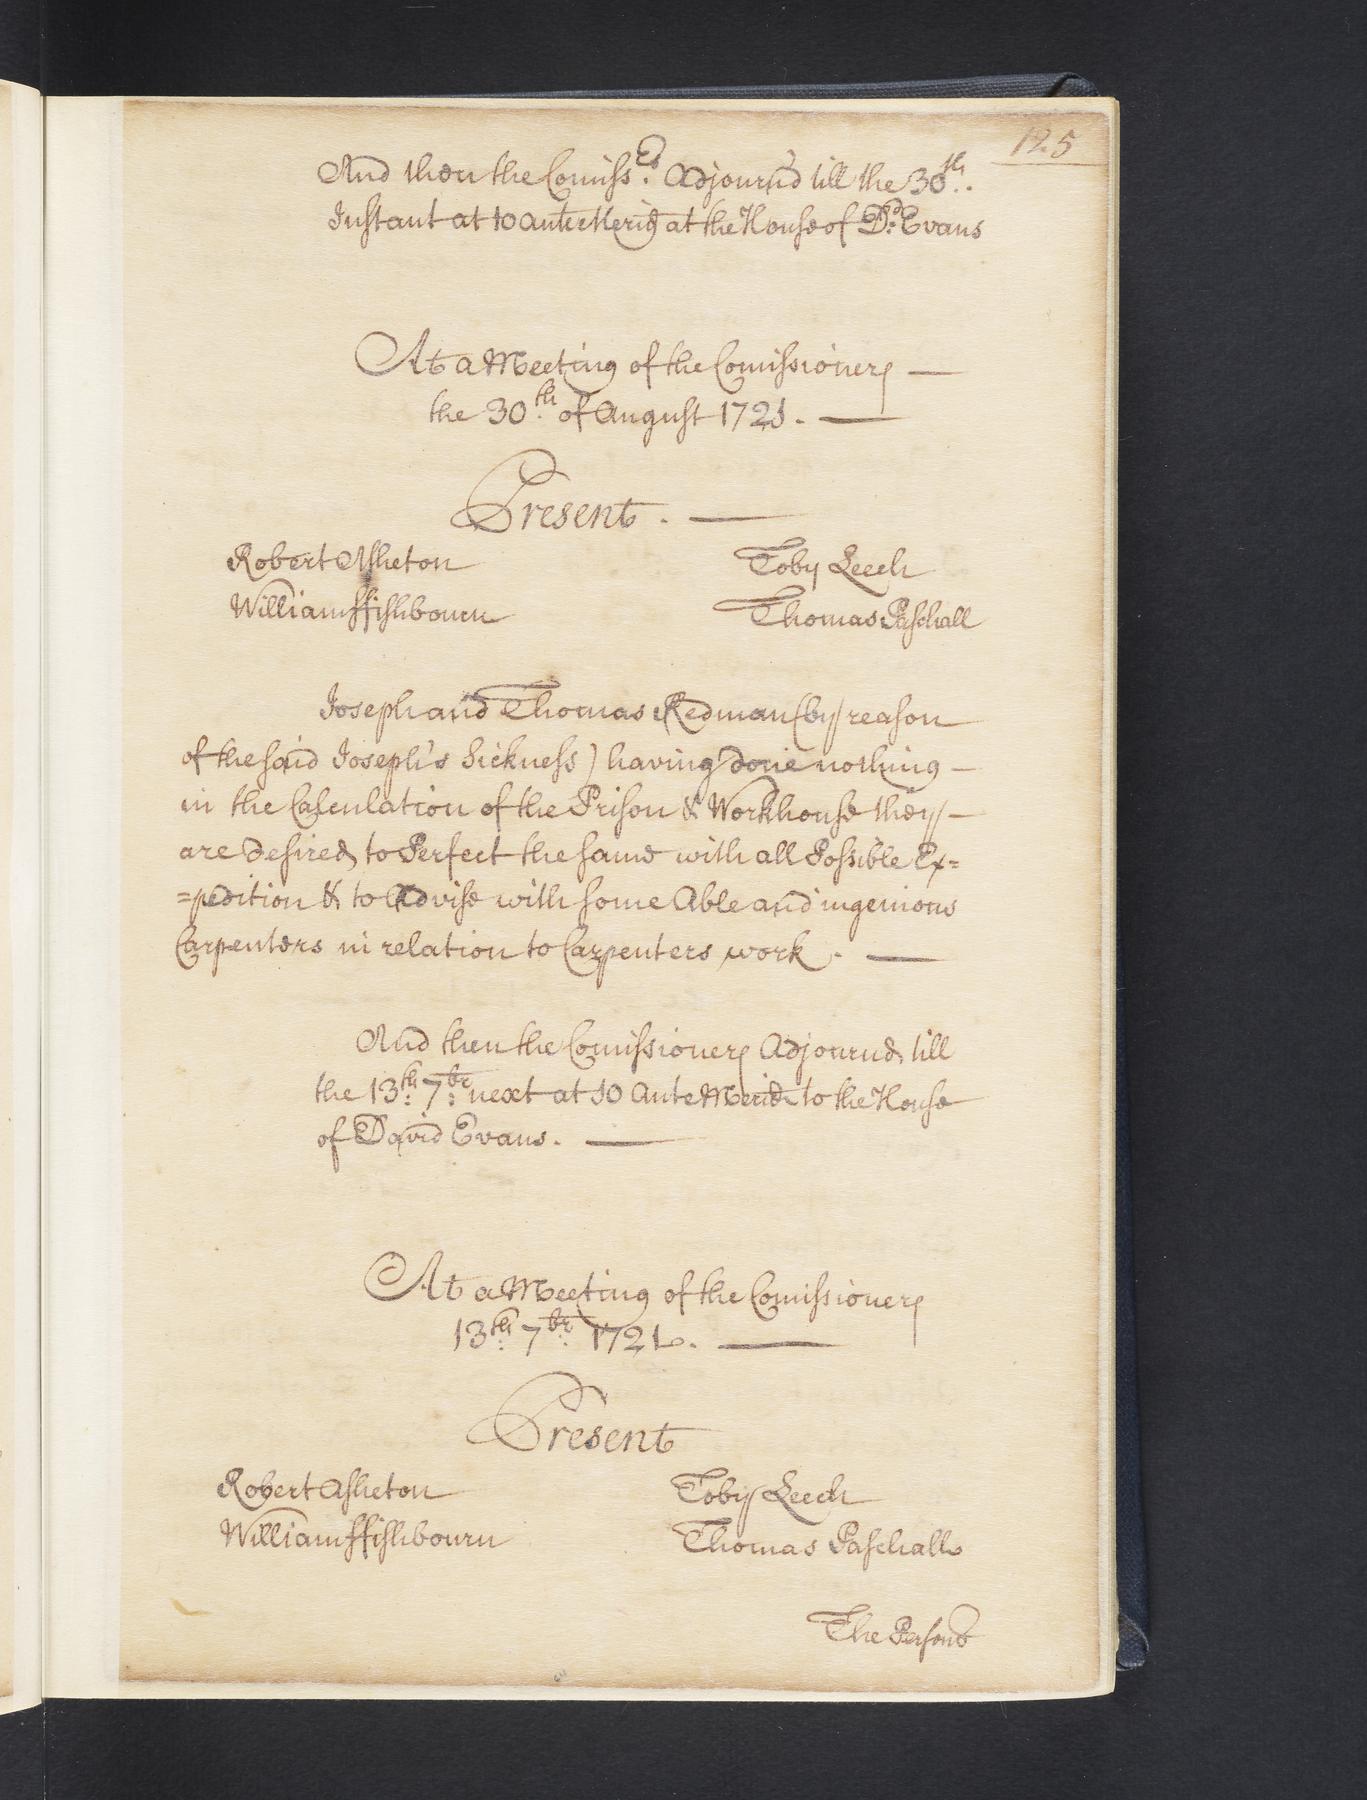 125
And then the Comiss.rs Adjournd till the 30th.
Instant at 10 ante Merid at the House of Dd. Evans
At a Meeting of the Comissioners —
the 30th. of August 1721. —
Present. —
Robert Assheton
Toby Leech
William ffishbourn
Thomas Paschall
Joseph and Thomas Redman (by reason
of the said Joseph's Sickness) having done nothing —
in the Calculation of the Prison & Workhouse they —
are desired to Perfect the same with all Possible Ex=
=pedition & to Advise with some Able and ingenious
Carpenters in relation to Carpenters work. —
And then the Comissioners Adjournd till
the 13th. 7br. next at 10 Ante Merid to the House
of David Evans. —
At a Meeting of the Comissioners
13th. 7br. 1721. —
Present
Robert Asheton
Toby Leech
William ffishbourn
Thomas Paschall
The Persons